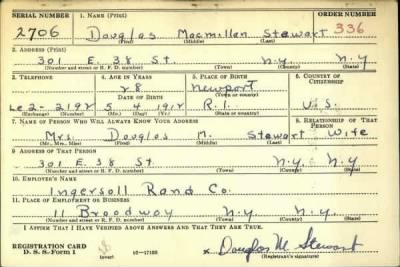 SERIAL NUMBER 1. NAME (Print) ORDER NUMBER
2706 Douglas Macmillen Stewart 336
(First) (Middle) (Last)
2. ADDRESS (Print)
301 E. 38 St. N.Y. N.Y
(Number and street or R. F. D. number) (Town) (County) (State)
3. TELEPHONE 4. AGE IN YEARS 5. PLACE OF BIRTH 6. COUNTRY OF CITIZENSHIP
28 Newport
DATE OF BIRTH (Town or county)
Le 2-2192 5 4 1912 R.I. U.S.
(Exchange) (Number) (Mo.) (Day) (Yr.) (State or country)
7. NAME OF PERSON WHO WILL ALWAYS KNOW YOUR ADDRESS 8. RELATIONSHIP OF THAT PERSON
Mrs. Douglas M. Stewart Wife
(Mr., Mrs., Miss) (First) (Middle) (Last)
9. ADDRESS OF THAT PERSON
301 E. 38 St N.Y. N.Y
(Number and street or R. F. D. number) (Town) (County) (State)
10. EMPLOYER'S NAME
Ingersoll Rand Co.
11. PLACE OF EMPLOYMENT OR BUSINESS
11 Broadway N.Y. N.Y.
(Number and street or R. F. D. number) (Town) (County) (State)
I AFFIRM THAT I HAVE VERIFIED ABOVE ANSWERS AND THAT THEY ARE TRUE.
REGISTRATION CARD x Douglas M. Stewart
D. S. S. Form 1 (over) 16—17105 (Registrant's signature)